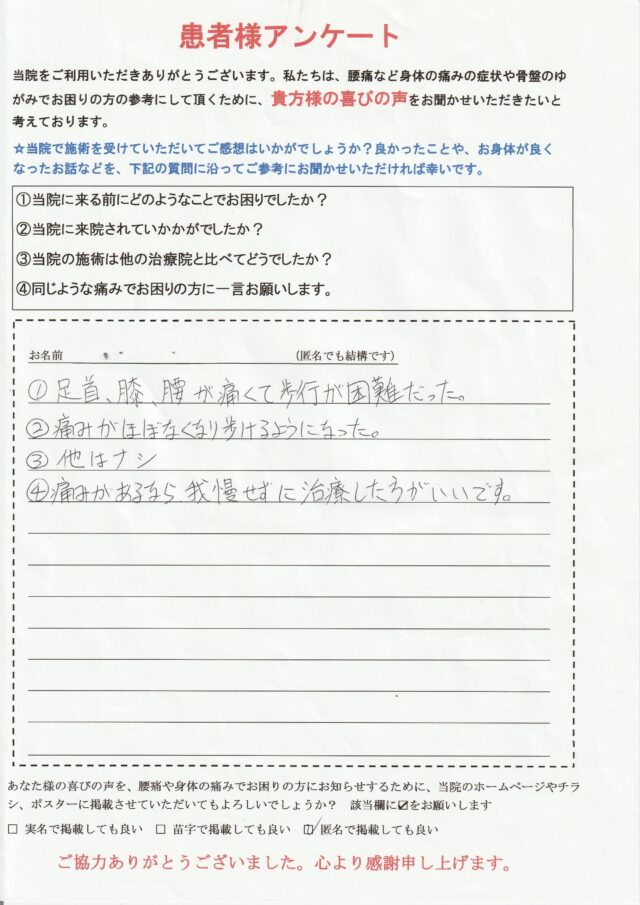 患者様アンケート
当院をご利用いただきありがとうございます。私たちは、腰痛など身体の痛みの症状や骨盤のゆ
がみでお困りの方の参考にして頂くために、貴方様の喜びの声をお聞かせいただきたいと
考えております。
☆当院で施術を受けていただいてご感想はいかがでしょうか？良かったことや、お身体が良く
なったお話などを、下記の質問に沿ってご参考にお聞かせいただければ幸いです。
①当院に来る前にどのようなことでお困りでしたか？
②当院に来院されていかかがでしたか？
③当院の施術は他の治療院と比べてどうでしたか？
④同じような痛みでお困りの方に一言お願いします。
お名前 (匿名でも結構です)
①足首、膝、腰が痛くて歩行が困難だった。
②痛みがほぼなくなり歩けるようになった。
③他はナシ
④痛みがあるなら、我慢せずに治療したろがいいです。
あなた様の喜びの声を、腰痛や身体の痛みでお困りの方にお知らせするために、当院のホームページやチラ
シ、ポスターに掲載させていただいてもよろしいでしょうか？ 該当欄に☑をお願いします
□ 実名で掲載しても良い □ 苗字で掲載しても良い ☑ 匿名で掲載しても良い
ご協力ありがとうございました。心より感謝申し上げます。